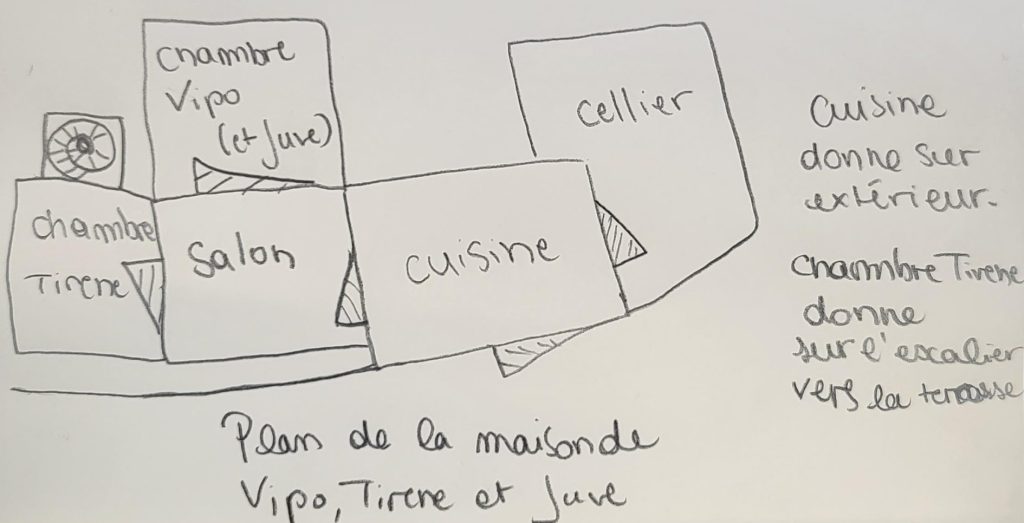 chambre
Vipo
(et Juve)
cellier
chambre
Tirene
Salon
cuisine
Cuisine
donne sur
extérieur.
Chambre Tirene
donne
sur l'escalier
vers la terrasse
Plan de la maison de
Vipo, Tirene et Juve